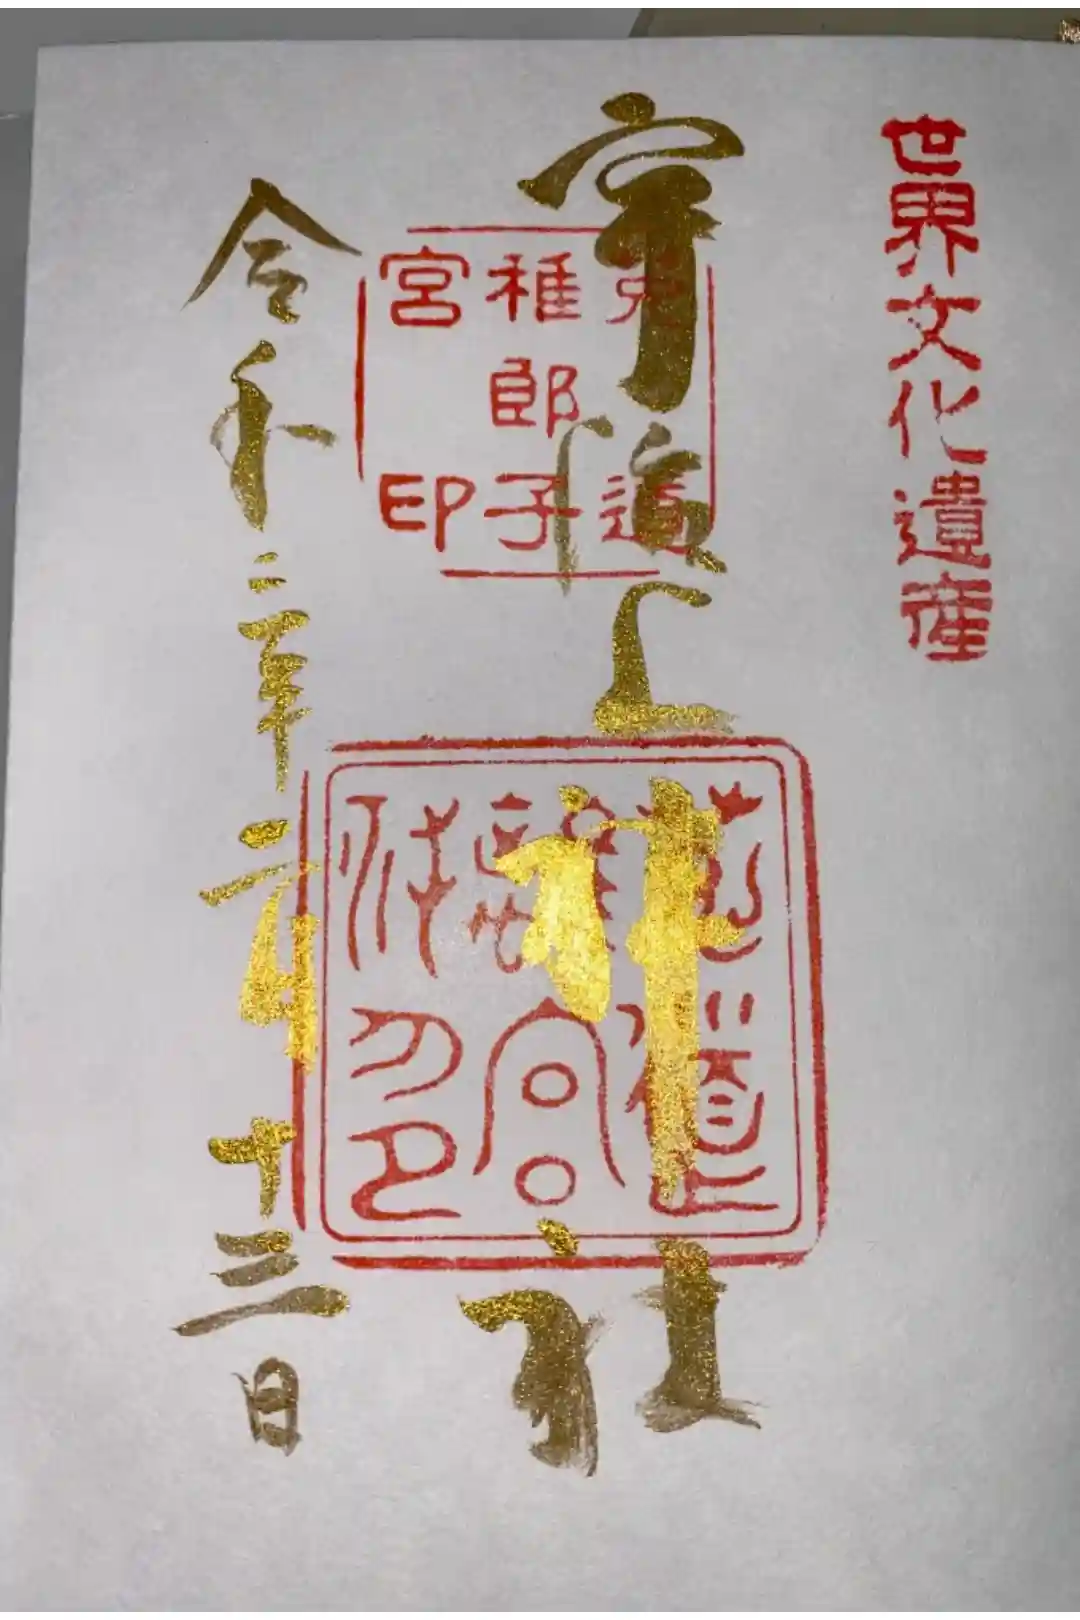 世界文化遺産
宇治上神社
菟道
稚郎子
宮印
菟道
離宮
令和二年二月十三日